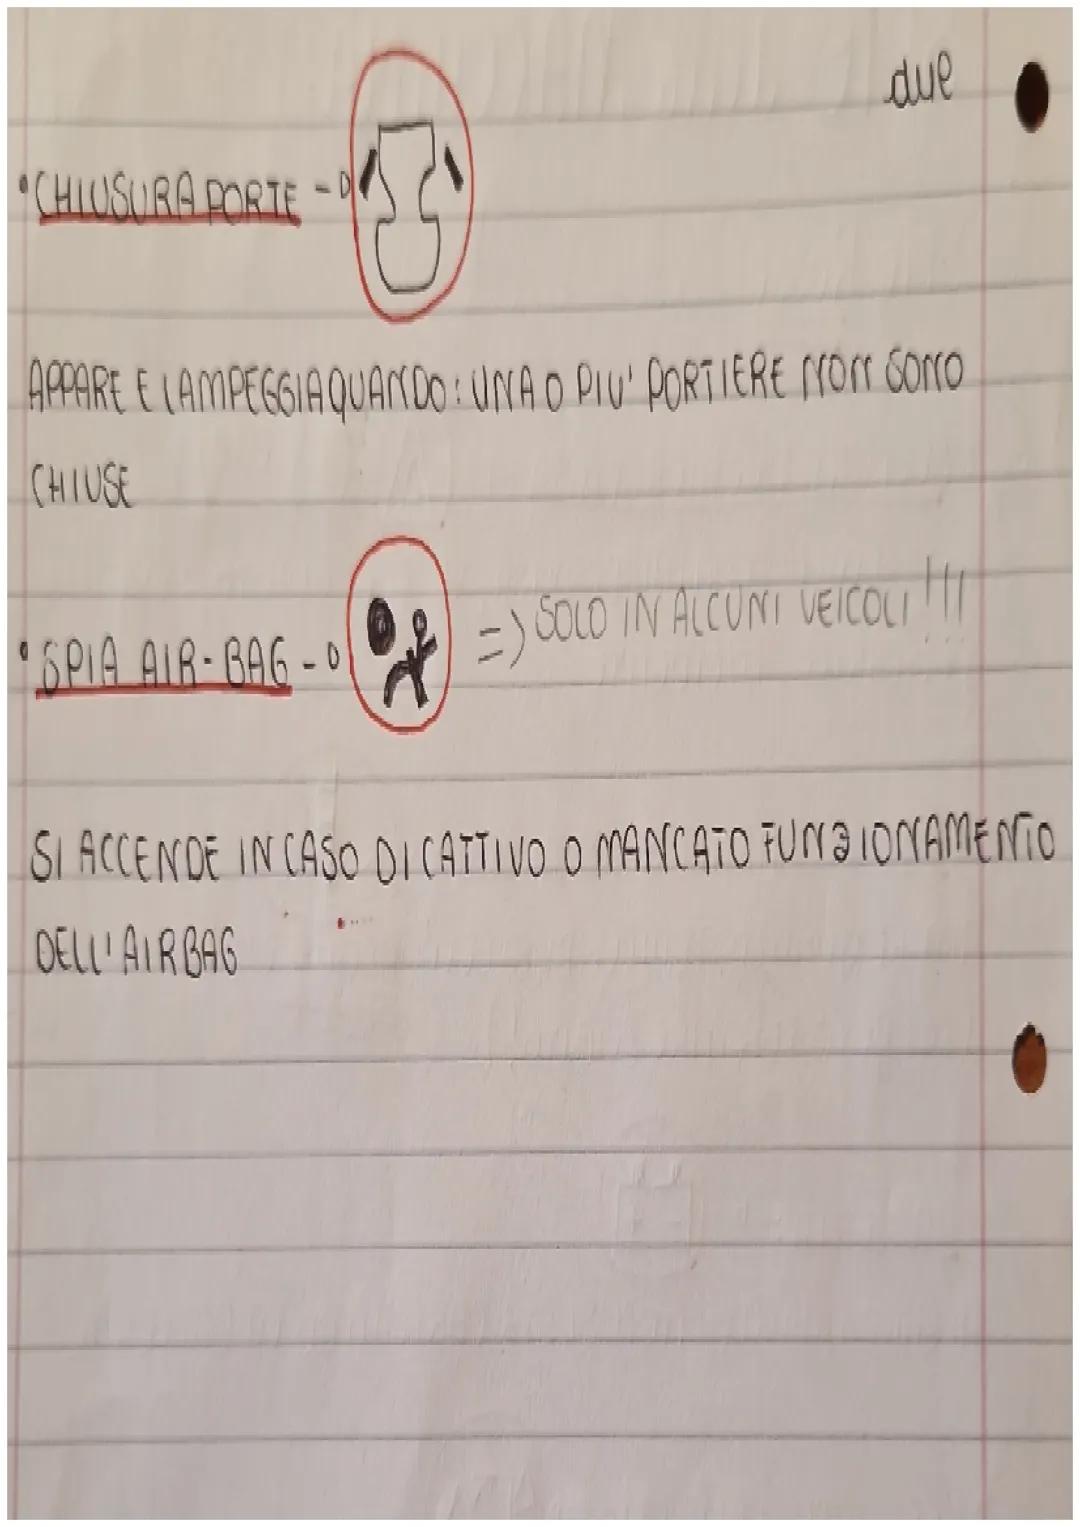 due
• CHIUSURA PORTE →
APPARE E LAMPEGGIA QUANDO: UNA O PIU' PORTIERE NON SONO
CHIUSE
• SPIA AIR-BAG → => SOLO IN ALCUNI VEICOLI!!!
SI ACCENDE IN CASO DI CATTIVO O MANCATO FUNZIONAMENTO
DELL'AIRBAG